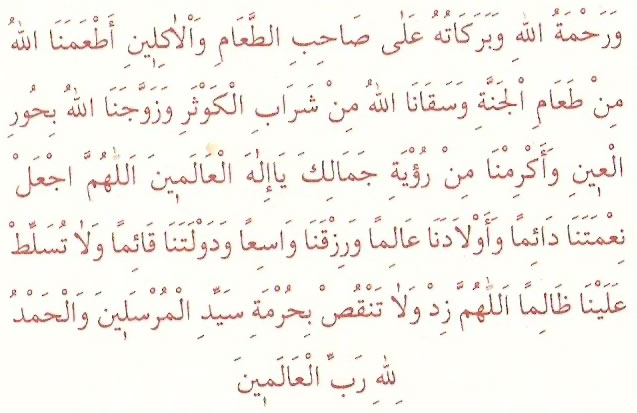 وَرَحْمَةُ اللهِ وَبَرَكَاتُهُ عَلٰى صَاحِبِ الطَّعَامِ وَاْلاٰكِلِينَ أَطْعَمَنَا اللهُ
مِنْ طَعَامِ اْلجَنَّةِ وَسَقَانَا اللهُ مِنْ شَرَابِ الْكَوْثَرِ وَزَوَّجَنَا اللهُ بِحُورِ
الْعٖينِ وَأَكْرِمْنَا مِنْ رُؤْيَةِ جَمَالِكَ يَاإِلٰهَ الْعَالَمٖينَ اَللّٰهُمَّ اجْعَلْ
نِعْمَتَنَا دَائِمًا وَأَوْلَادَنَا عَالِمًا وَرِزْقَنَا وَاسِعًا وَدَوْلَتَنَا قَائِمًا وَلَا تُسَلِّطْ
عَلَيْنَا ظَالِمًا اَللّٰهُمَّ زِدْ وَلَا تَنْقُصْ بِحُرْمَةِ سَيِّدِ الْمُرْسَلٖينَ وَالْحَمْدُ
لِلّٰهِ رَبِّ الْعَالَمٖينَ